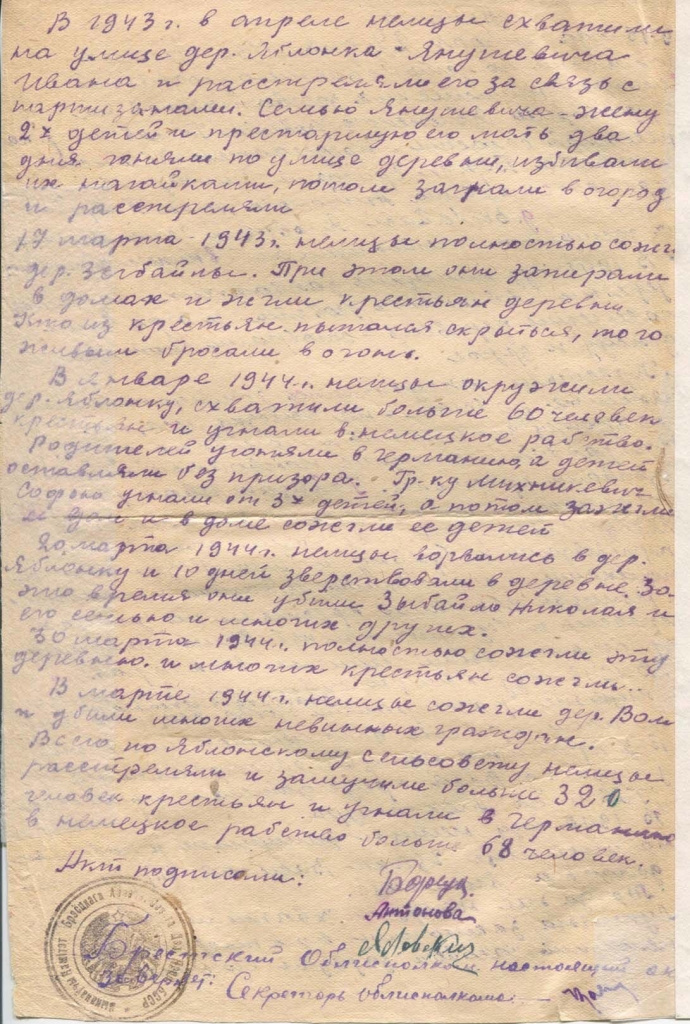 В 1943 г. в апреле немцы схватили
на улице дер. Яблонка - Янушевича
Ивана и расстреляли его за связь с
партизанами. Семью Янушевича - жену
2х детей и престарилую его мать два
дня гоняли по улице деревни, избивали
их нагайками, потом загнали в огород
и расстреляли
17 марта 1943 г. немцы полностью сожгли
дер. Зыбайлы. При этом они запирали
в домах и жгли крестьян деревни
Кто из крестьян пытался скрыться, того
живьем бросали в огонь.
В январе 1944 г. немцы окружили
дер. Яблонку, схватили больше 60 человек
крестьян и угнали в немецкое рабство.
Родителей угоняли в Германию, а детей
оставляли без призора. Гр-ку Михникевич
Софью угнали от 3х детей, а потом зажгли
ее дом и в доме сожгли ее детей
20 марта 1944 г. немцы ворвались в дер.
Яблонку и 10 дней зверствовали в деревне. За
это время они убили Зыбайло Николая и
его семью и многих других.
30 марта 1944 г. полностью сожгли эту
деревню и многих крестьян сожгли..
В марте 1944 г. немцы сожгли дер. Воля
и убили многих невинных граждан.
Всего по Яблонскому сельсовету немцы
расстреляли и замучили больше 320
человек крестьян и угнали в Германию
в немецкое рабство больше 68 человек.
Акт подписали:
Антонова
Брестский Облисполком настоящий
Секретарь облисполкома: —